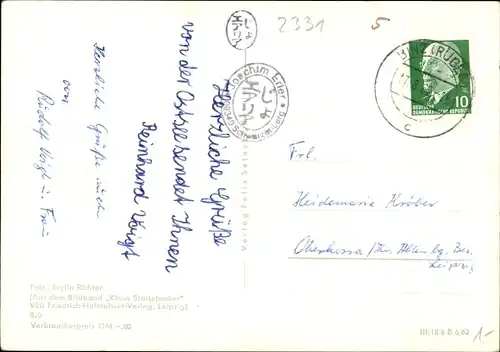 2331
5
BINZ (RÜGEN)
c
DEUTSCHE
DEMOKRATISCHE REPUBLIK
10
Joachim Erler
Schwarzenberg
Herzliche Grüße
von der Ostsee sendet Ihnen
Reinhard Voigt
Herzliche Grüße auch
von
Rudolf Voigt u. Frau
Verlag Felix Setecki
Frl.
Heidemarie Kröber
Oberkossa
Leipzig
Foto: Evylin Richter
(Aus dem Bildband „Klaus Störtebecker"
VEB Friedrich Hofmeister-Verlag, Leipzig)
Verbraucherpreis DM -,20
III/18/6 B 6/62
1,-